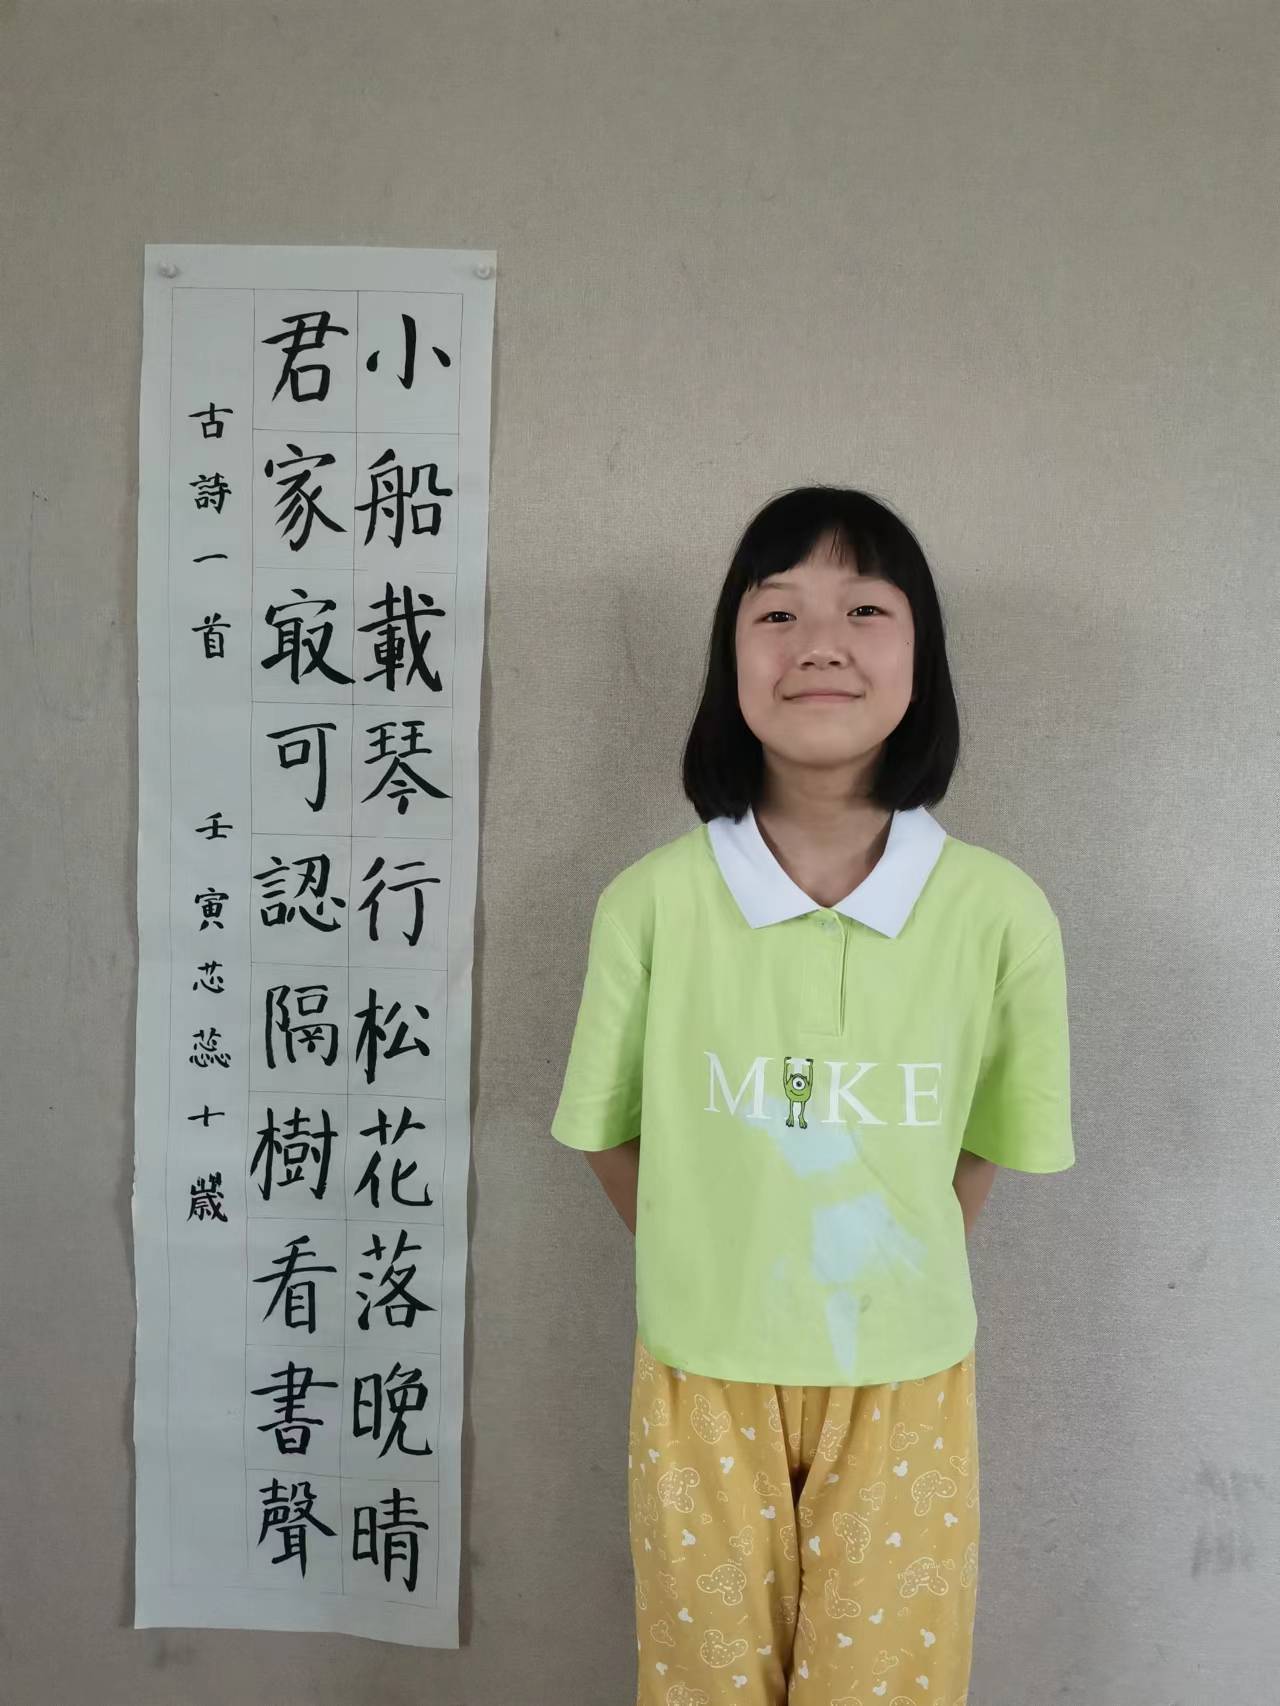 小船載琴行松花落晚晴
君家㝡可認隔樹看書聲
古詩一首 壬寅芯蕊十歲
MIKE